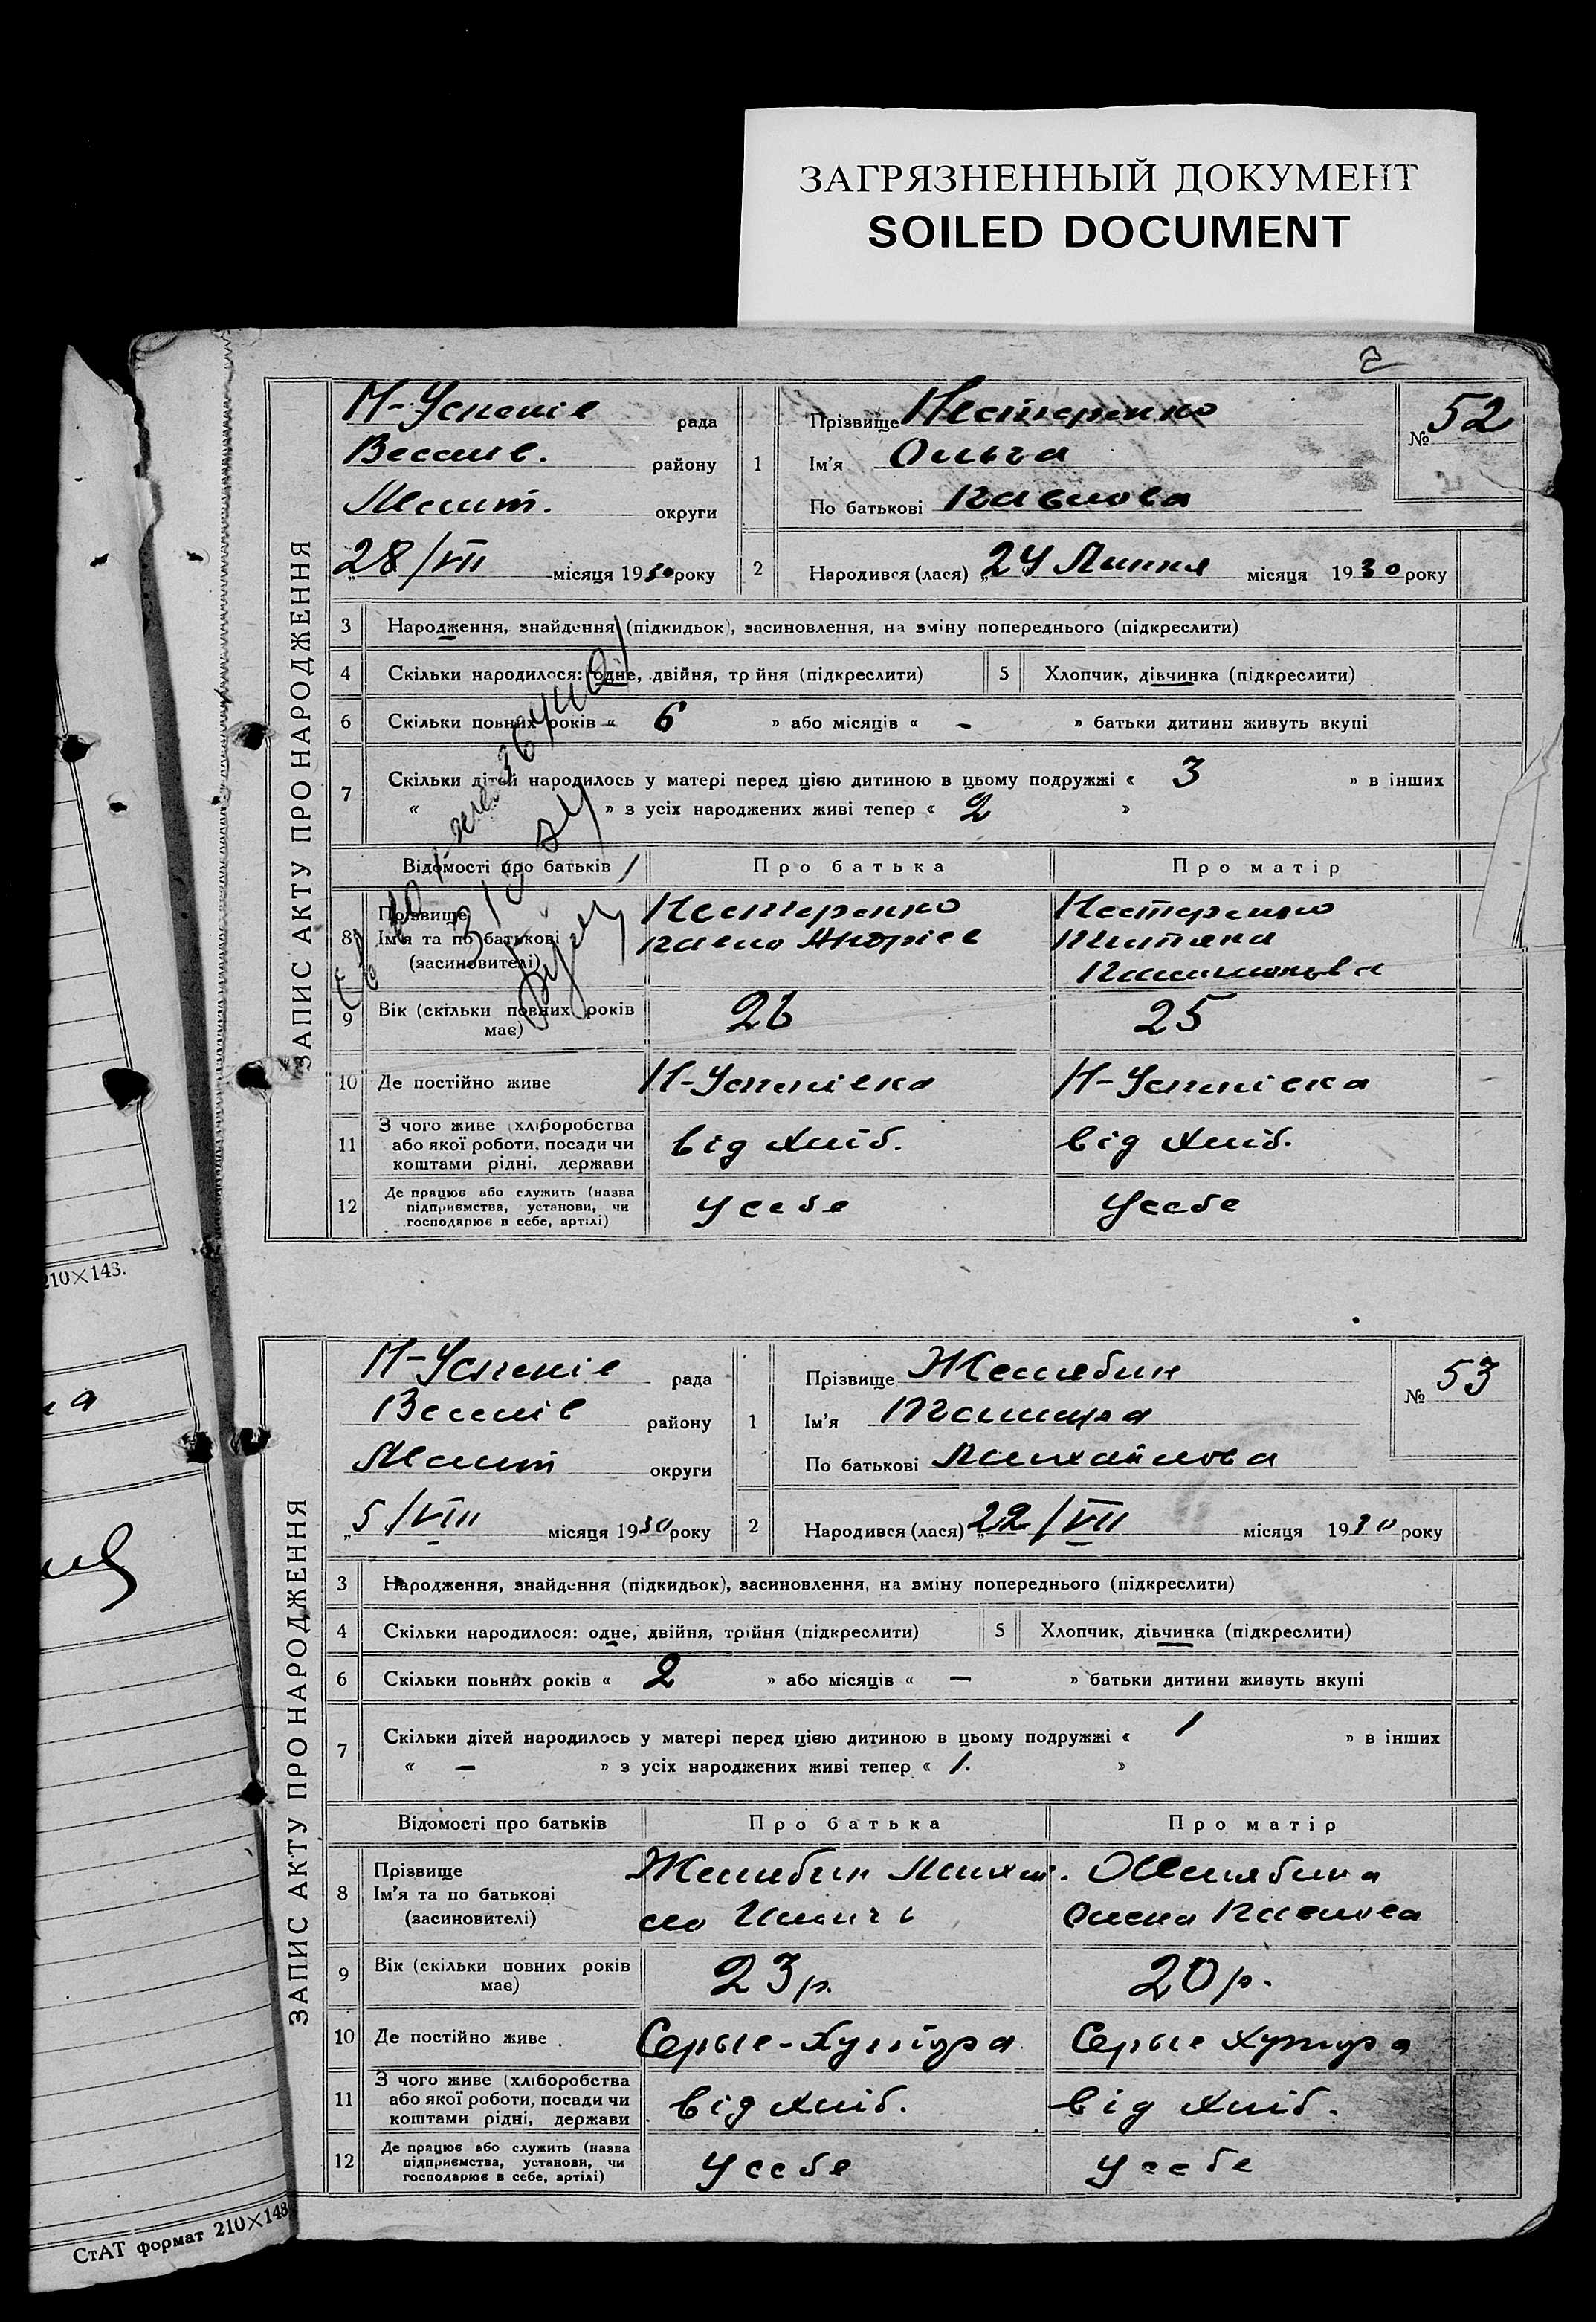 ЗАГРЯЗНЕННЫЙ ДОКУМЕНТ
SOILED DOCUMENT
ЗАПИС АКТУ ПРО НАРОДЖЕННЯ
Н-Успенів рада
Веселів. району
Меліт. округи
„28/VII місяця 1930 року
1
Прізвище Нестеренко
Ім'я Ольга
По батькові Павлова
№ 52
2 Народився (лася) „24 Липня місяця 1930 року
3 Народження, знайдення (підкидьок), засиновлення, на зміну попереднього (підкреслити)
4 Скільки народилося: одне, двійня, трійня (підкреслити) 5 Хлопчик, дівчинка (підкреслити)
6 Скільки повних років « 6 » або місяців « - » батьки дитини живуть вкупі
7 Скільки дітей народилось у матері перед цією дитиною в цьому подружжі « 3 » в інших
« » з усіх народжених живі тепер « 2 »
Відомості про батьків Про батька Про матір
8 Прізвище Нестеренко Нестеренко
Ім'я та по батькові Павло Андріев Титяна
(засновителі)
9 Вік (скільки повних років має) 26 25
10 Де постійно живе Н-Успенівка Н-Успенівка
11 З чого живе (хліборобства від хліб. від хліб.
або якої роботи, посади чи
коштами рідні, держави
12 Де працює або служить (назва усебе усебе
підприємства, установи, чи
господарює в себе, артілі)
210×143.
ЗАПИС АКТУ ПРО НАРОДЖЕННЯ
Н-Успенів рада
Веселів району
Меліт округи
„5/VIII місяця 1930 року
1
Прізвище Желябин
Ім'я Тамара
По батькові Михайлова
№ 53
2 Народився (лася) „22/VII місяця 1930 року
3 Народження, знайдення (підкидьок), засиновлення, на зміну попереднього (підкреслити)
4 Скільки народилося: одне, двійня, трійня (підкреслити) 5 Хлопчик, дівчинка (підкреслити)
6 Скільки повних років « 2 » або місяців « - » батьки дитини живуть вкупі
7 Скільки дітей народилось у матері перед цією дитиною в цьому подружжі « 1 » в інших
« - » з усіх народжених живі тепер « 1. »
Відомості про батьків Про батька Про матір
8 Прізвище Желябин Михай Желябина
Ім'я та по батькові ло Ильичь Олена Павлова
(засиновителі)
9 Вік (скільки повних років має) 23 р. 20 р.
10 Де постійно живе Серые-Хутора Серые Хутора
11 З чого живе (хліборобства від хліб. від хліб.
або якої роботи, посади чи
коштами рідні, держави
12 Де працює або служить (назва усебе усебе
підприємства, установи, чи
господарює в себе, артілі)
СтАТ формат 210×148